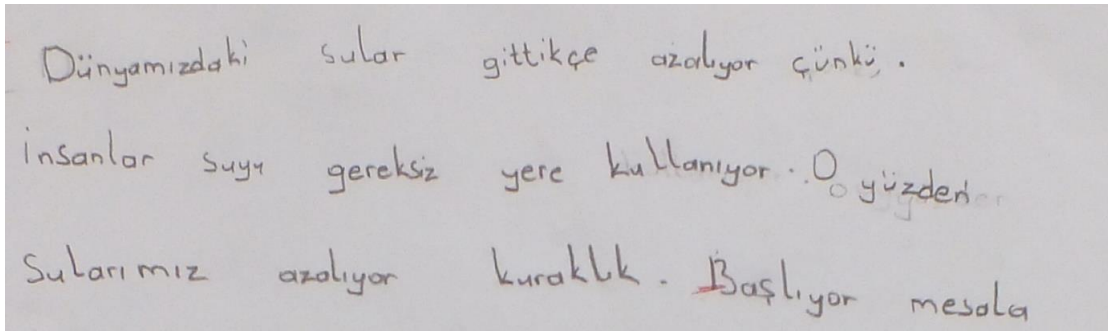 Dünyamızdaki sular gittikçe azalıyor çünkü.
insanlar suyu gereksiz yere kullanıyor. O yüzden
Sularımız azalıyor kuraklık. Başlıyor mesala